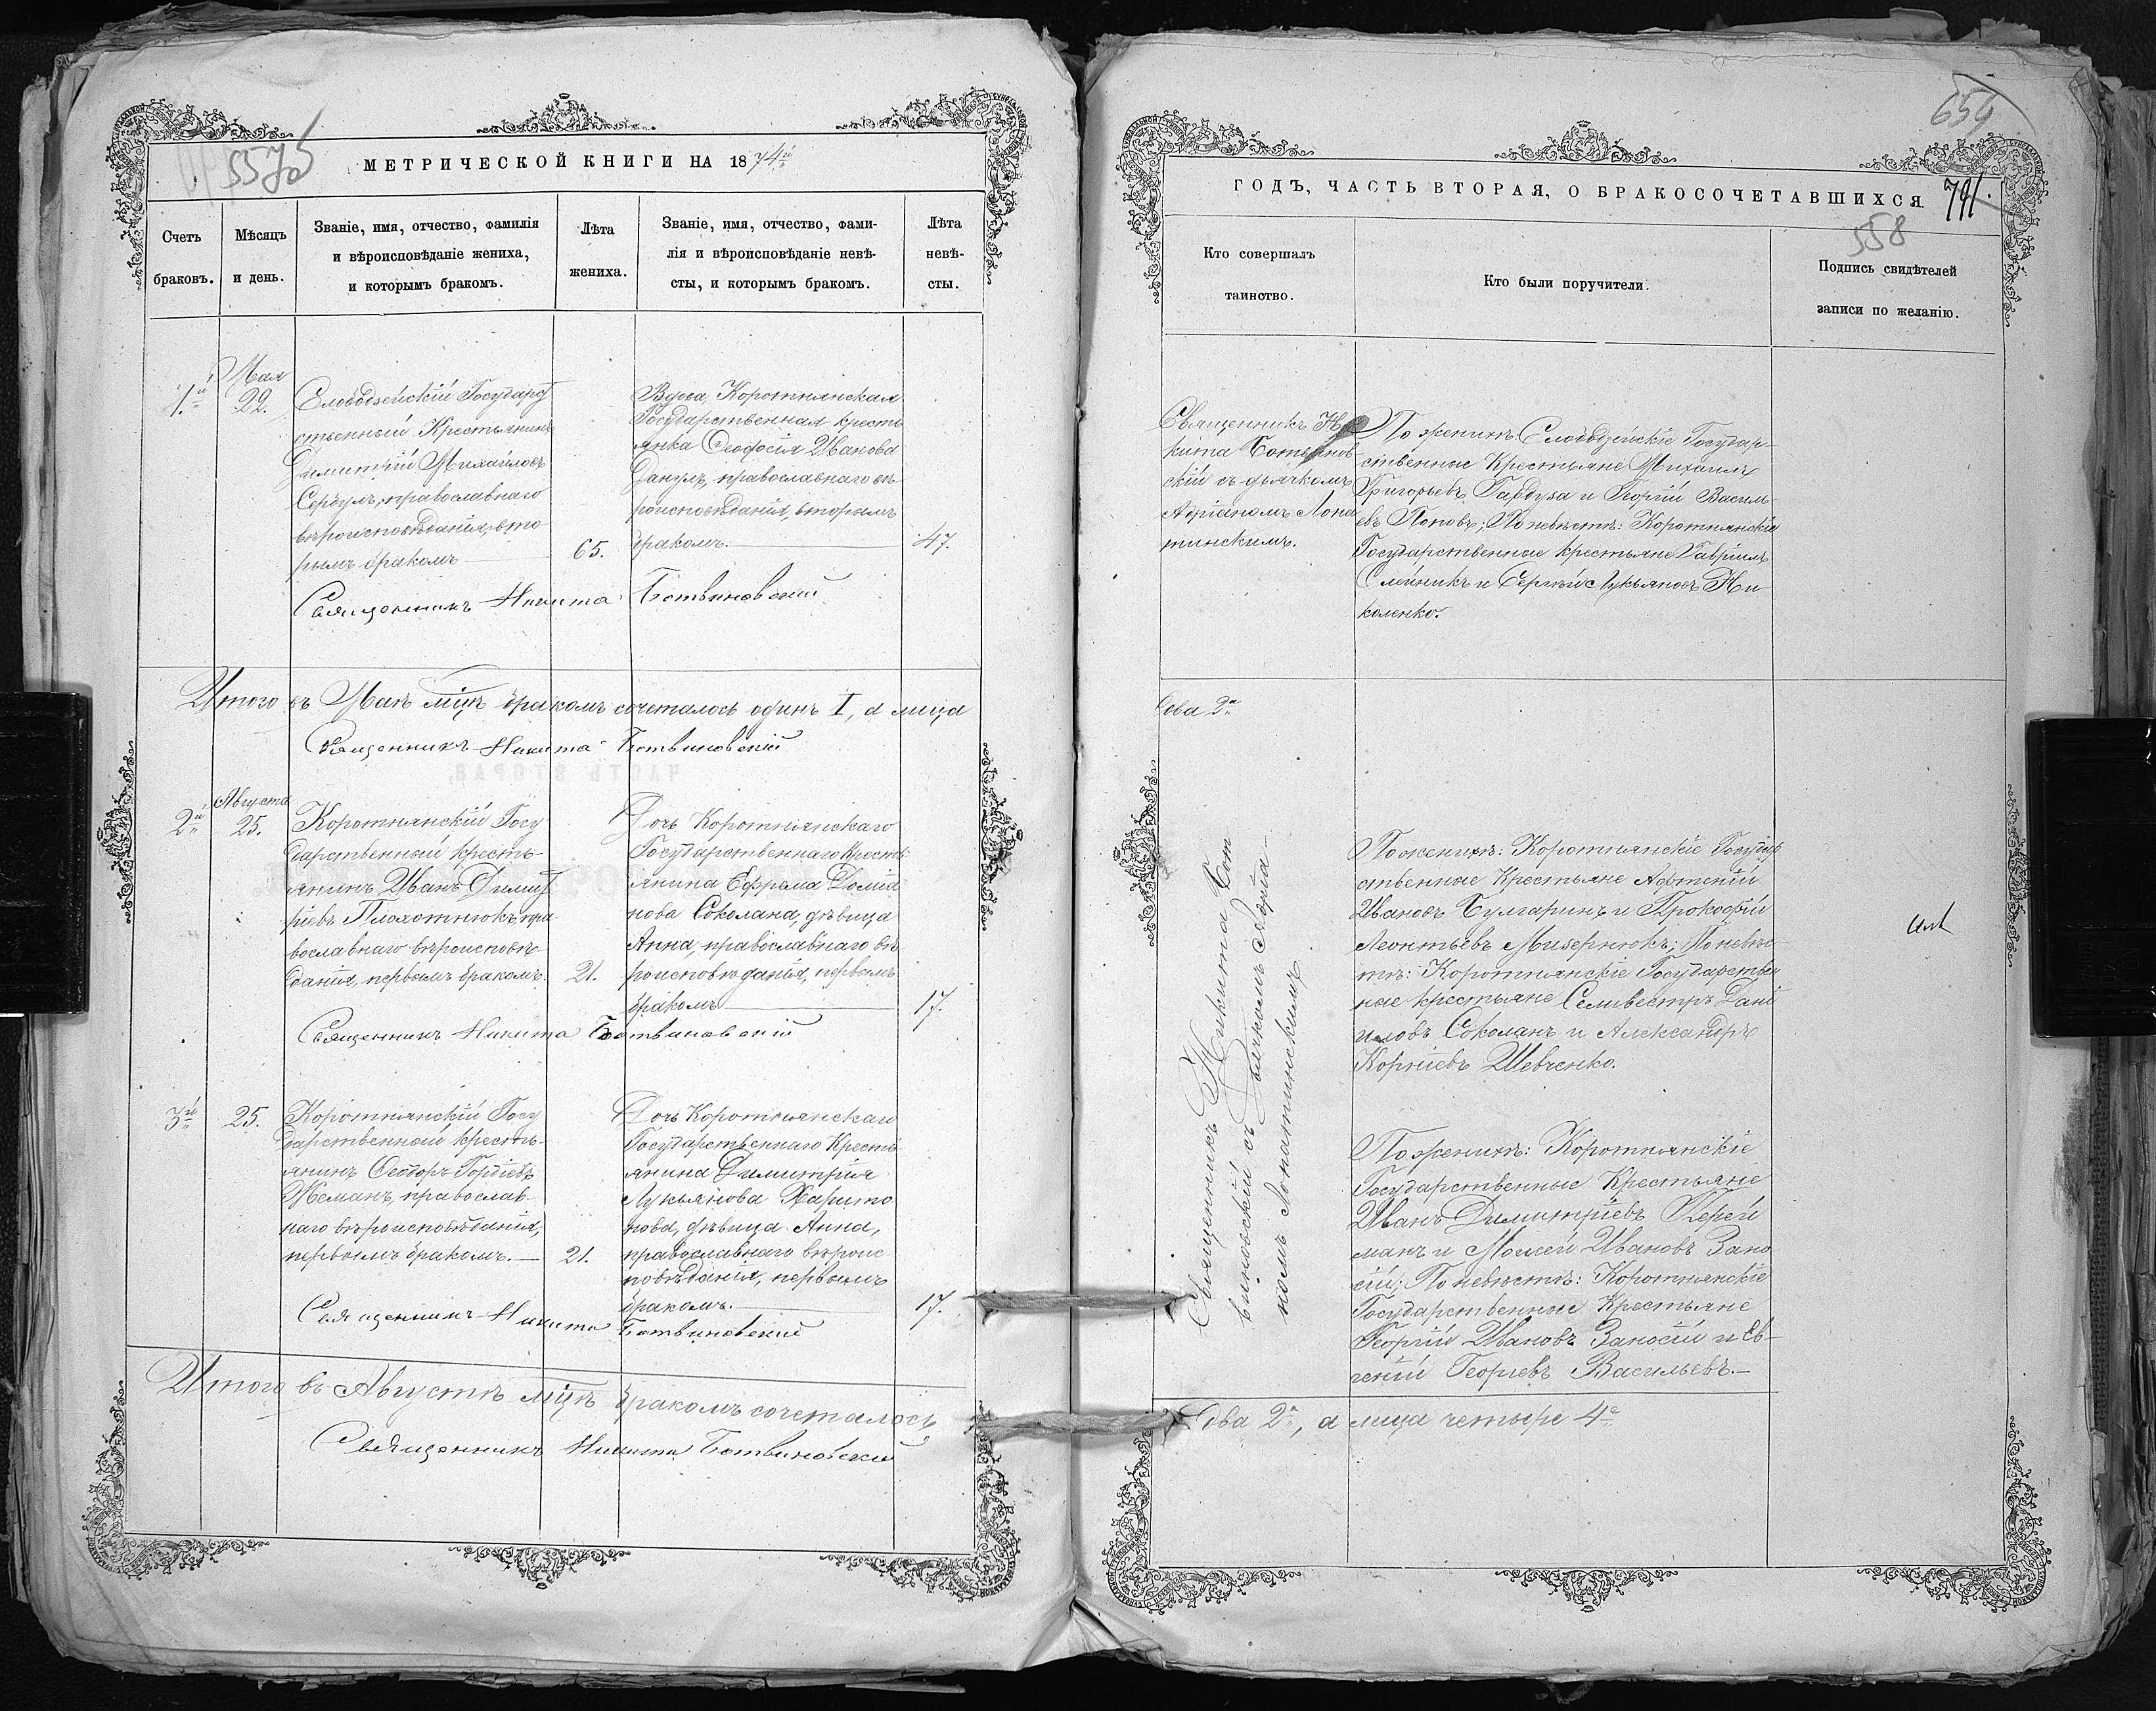 5575
МЕТРИЧЕСКОЙ КНИГИ НА 1874й
Счетъ
браковъ.
Мѣсяцъ
и день.
Званіе, имя, отчество, фамилія
и вѣроисповѣданіе жениха,
и которымъ бракомъ.
Лѣта
жениха.
Званіе, имя, отчество, фами-
лія и вѣроисповѣданіе невѣ-
сты, и которымъ бракомъ.
Лѣта
невѣ-
сты.
1.й
Мая
22.
Слободзейскій Государ
ственный Крестьянинъ
Димитрій Михайловъ
Сербулъ, православнаго
вѣроисповѣданія, вто
рымъ бракомъ
65.
Вдова, Коротнянская
Государственная кресть
янка Ѳеодосія Иванова
Данулъ, православнаго вѣ
роисповѣданія, вторымъ
бракомъ.
47.
Священникъ Никита Ботвиновскій
Итого въ Маѣ мцѣ бракомъ сочеталось одинъ I, а лица
Священникъ Никита Ботвиновскій
2й
Августа
25.
Коротнянскій Госу
дарственный кресть-
янинъ Иванъ Димит
ріевъ Плохотнюкъ, пра
вославнаго вѣроисповѣ-
данія, первымъ бракомъ.
21.
Дочь Коротнянскаго
Государственнаго Кресть
янина Ефрема Домiа
нова Соколана, дѣвица
Анна, православнаго вѣ
роисповѣданія, первымъ
бракомъ
17.
Священникъ Никита Ботвиновскій
3й
25.
Коротнянскій Госу
дарственный кресть-
янинъ Ѳеодоръ Гордіевъ
Жеманъ, православ-
наго вѣроисповѣданія,
первымъ бракомъ.
21.
Дочь Коротнянскаго
Государственнаго Кресть
янина Димитрія
Лукьянова Харито
нова, дѣвица Анна,
православнаго вѣроис
повѣданія, первымъ
бракомъ.
17.
Священникъ Никита Ботвиновскій
Итого въ Августѣ мцѣ бракомъ сочеталось
Священникъ Никита Ботвиновскій
659
ГОДЪ, ЧАСТЬ ВТОРАЯ, О БРАКОСОЧЕТАВШИХСЯ.
791.
558
Кто совершалъ
таинство.
Кто были поручители.
Подпись свидѣтелей
записи по желанію.
Священникъ Ни
кита Ботвинов-
скій съ дьячкомъ
Адріаномъ Лопа
тинскимъ.
По женихѣ: Слободзейскіе Государ-
ственные Крестьяне Михаилъ
Григорьевъ Гардуза и Георгій Василь-
евъ Поповъ; По невѣстѣ: Коротнянскіе
Государственные крестьяне Гавріилъ
Слейникъ и Сергѣй Лукьяновъ Ни
коленко.
два 2а
Священникъ Никита Бот
виновскій съ Дьячкомъ Адріа-
номъ Лопатинскимъ.
По женихѣ: Коротнянскіе Государ
ственные Крестьяне Афтеній
Ивановъ Булгаринъ и Прокофій
Леонтьевъ Мизернюкъ; По невѣс-
тѣ: Коротнянскіе Государствен
ные крестьяне Селивестръ Дані
иловъ Соколанъ и Александръ
Корніевъ Шевченко.
По женихѣ: Коротнянскіе
Государственные Крестьяне
Иванъ Димитріевъ Керей
манъ и Моисей Ивановъ Зано
сій; По невѣстѣ: Коротнянскіе
Государственные Крестьяне
Георгій Ивановъ Заносій и Ев-
геній Георгіевъ Васильевъ.
два 2а, а лица четыре 4е